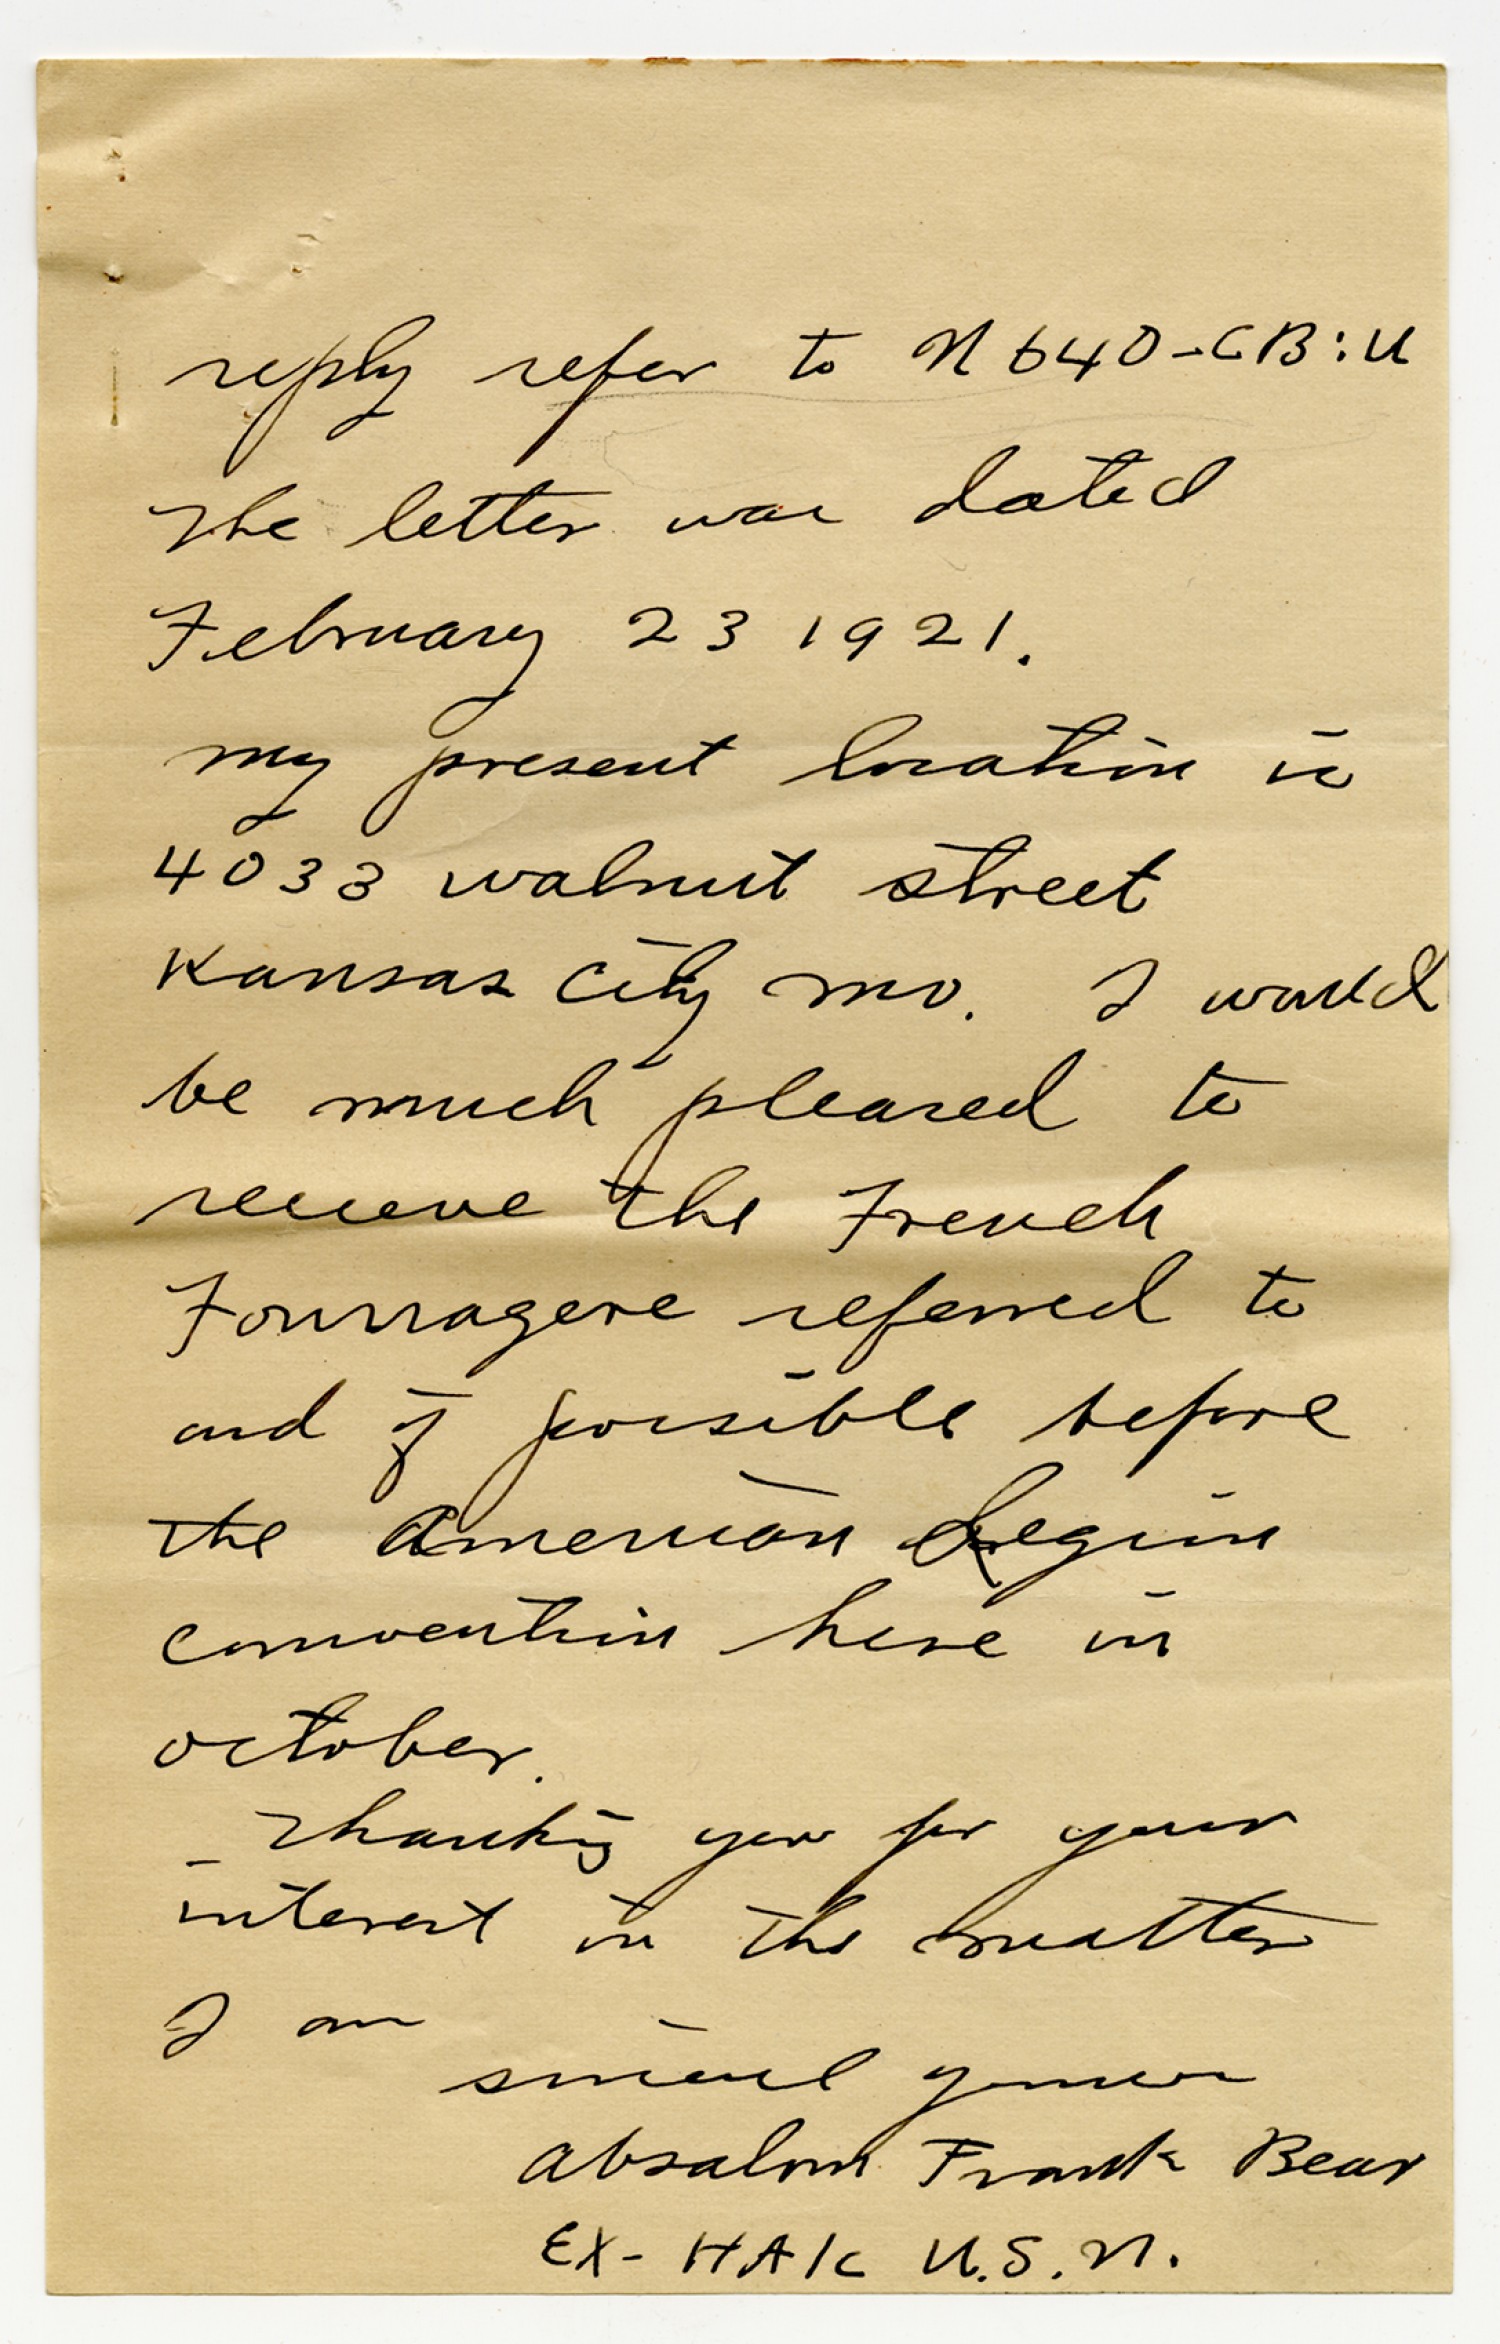 reply refer to N 640-CB:U
The letter was dated
February 23 1921.
my present location is
4033 walnut street
Kansas City mo. I would
be much pleased to
receive the French
Fourragere referred to
and if possible before
the American Legion
convention here in
october.
Thanking you for your
interest in the matter
I am
sincerel yours
Absalom Frank Bear
EX- HA1c U.S.N.